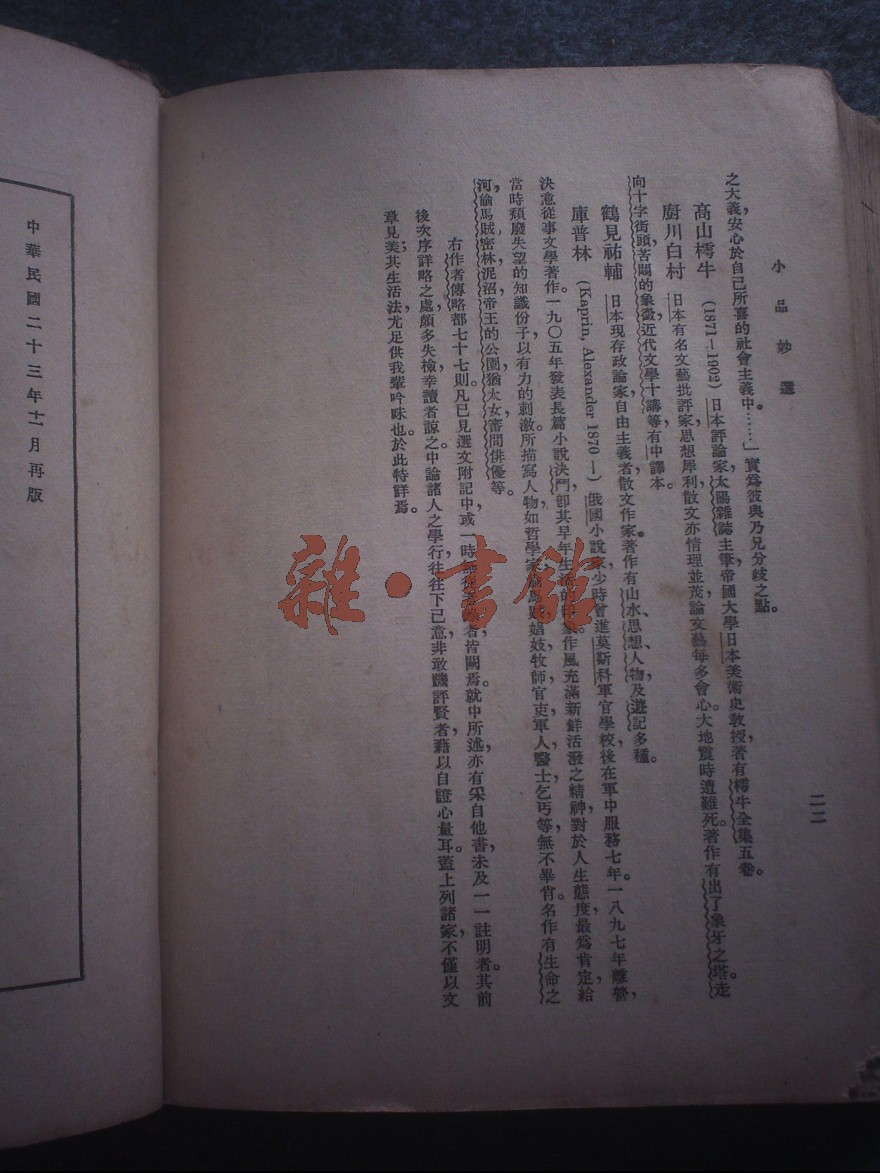 小品妙選
二二
之大義安心於自己所喜的社會主義中。……」實為彼與乃兄分歧之點。
高山樗牛 (1871—1902) 日本評論家，太陽雜誌主筆帝國大學日本美術史教授著有樗牛全集五卷。
廚川白村 日本有名文藝批評家思想犀利散文亦情理並茂論文藝每多會心大地震時遭難死。著作有出了象牙之塔。走
向十字街頭苦悶的象徵近代文學十講等有中譯本。
鶴見祐輔 日本現存政論家自由主義者散文作家。著作有山水、思想、人物、及遊記多種。
庫普林 (Kaprin, Alexander 1870—) 俄國小說家少時曾進莫斯科軍官學校後在軍中服務七年。一八九七年離營，
決意從事文學著作。一九〇五年發表長篇小說決鬥卽其早年生活的作風充滿新鮮活潑之精神對於人生態度最為肯定給
當時頹廢失望的知識份子以有力的刺激所描寫人物，如哲學家娼妓牧師官吏，軍人，醫士乞丐等，無不畢肖。名作有生命之
河，偷馬賊密林泥沼帝王的公園猶太女審問俳優等。
右作者傳略都七十七則凡已見選文附記中，或一時者皆闕焉。就中所述亦有采自他書，未及一一註明者。其前
後次序詳略之處頗多失檢幸讀者諒之中論諸人之學行往往下已意，非敢譏評賢者，藉以自證心量耳。蓋上列諸家，不僅以文
章見美其生活法尤足供我輩吟味也於此特詳焉。
中華民國二十三年十一月再版
雜·書館